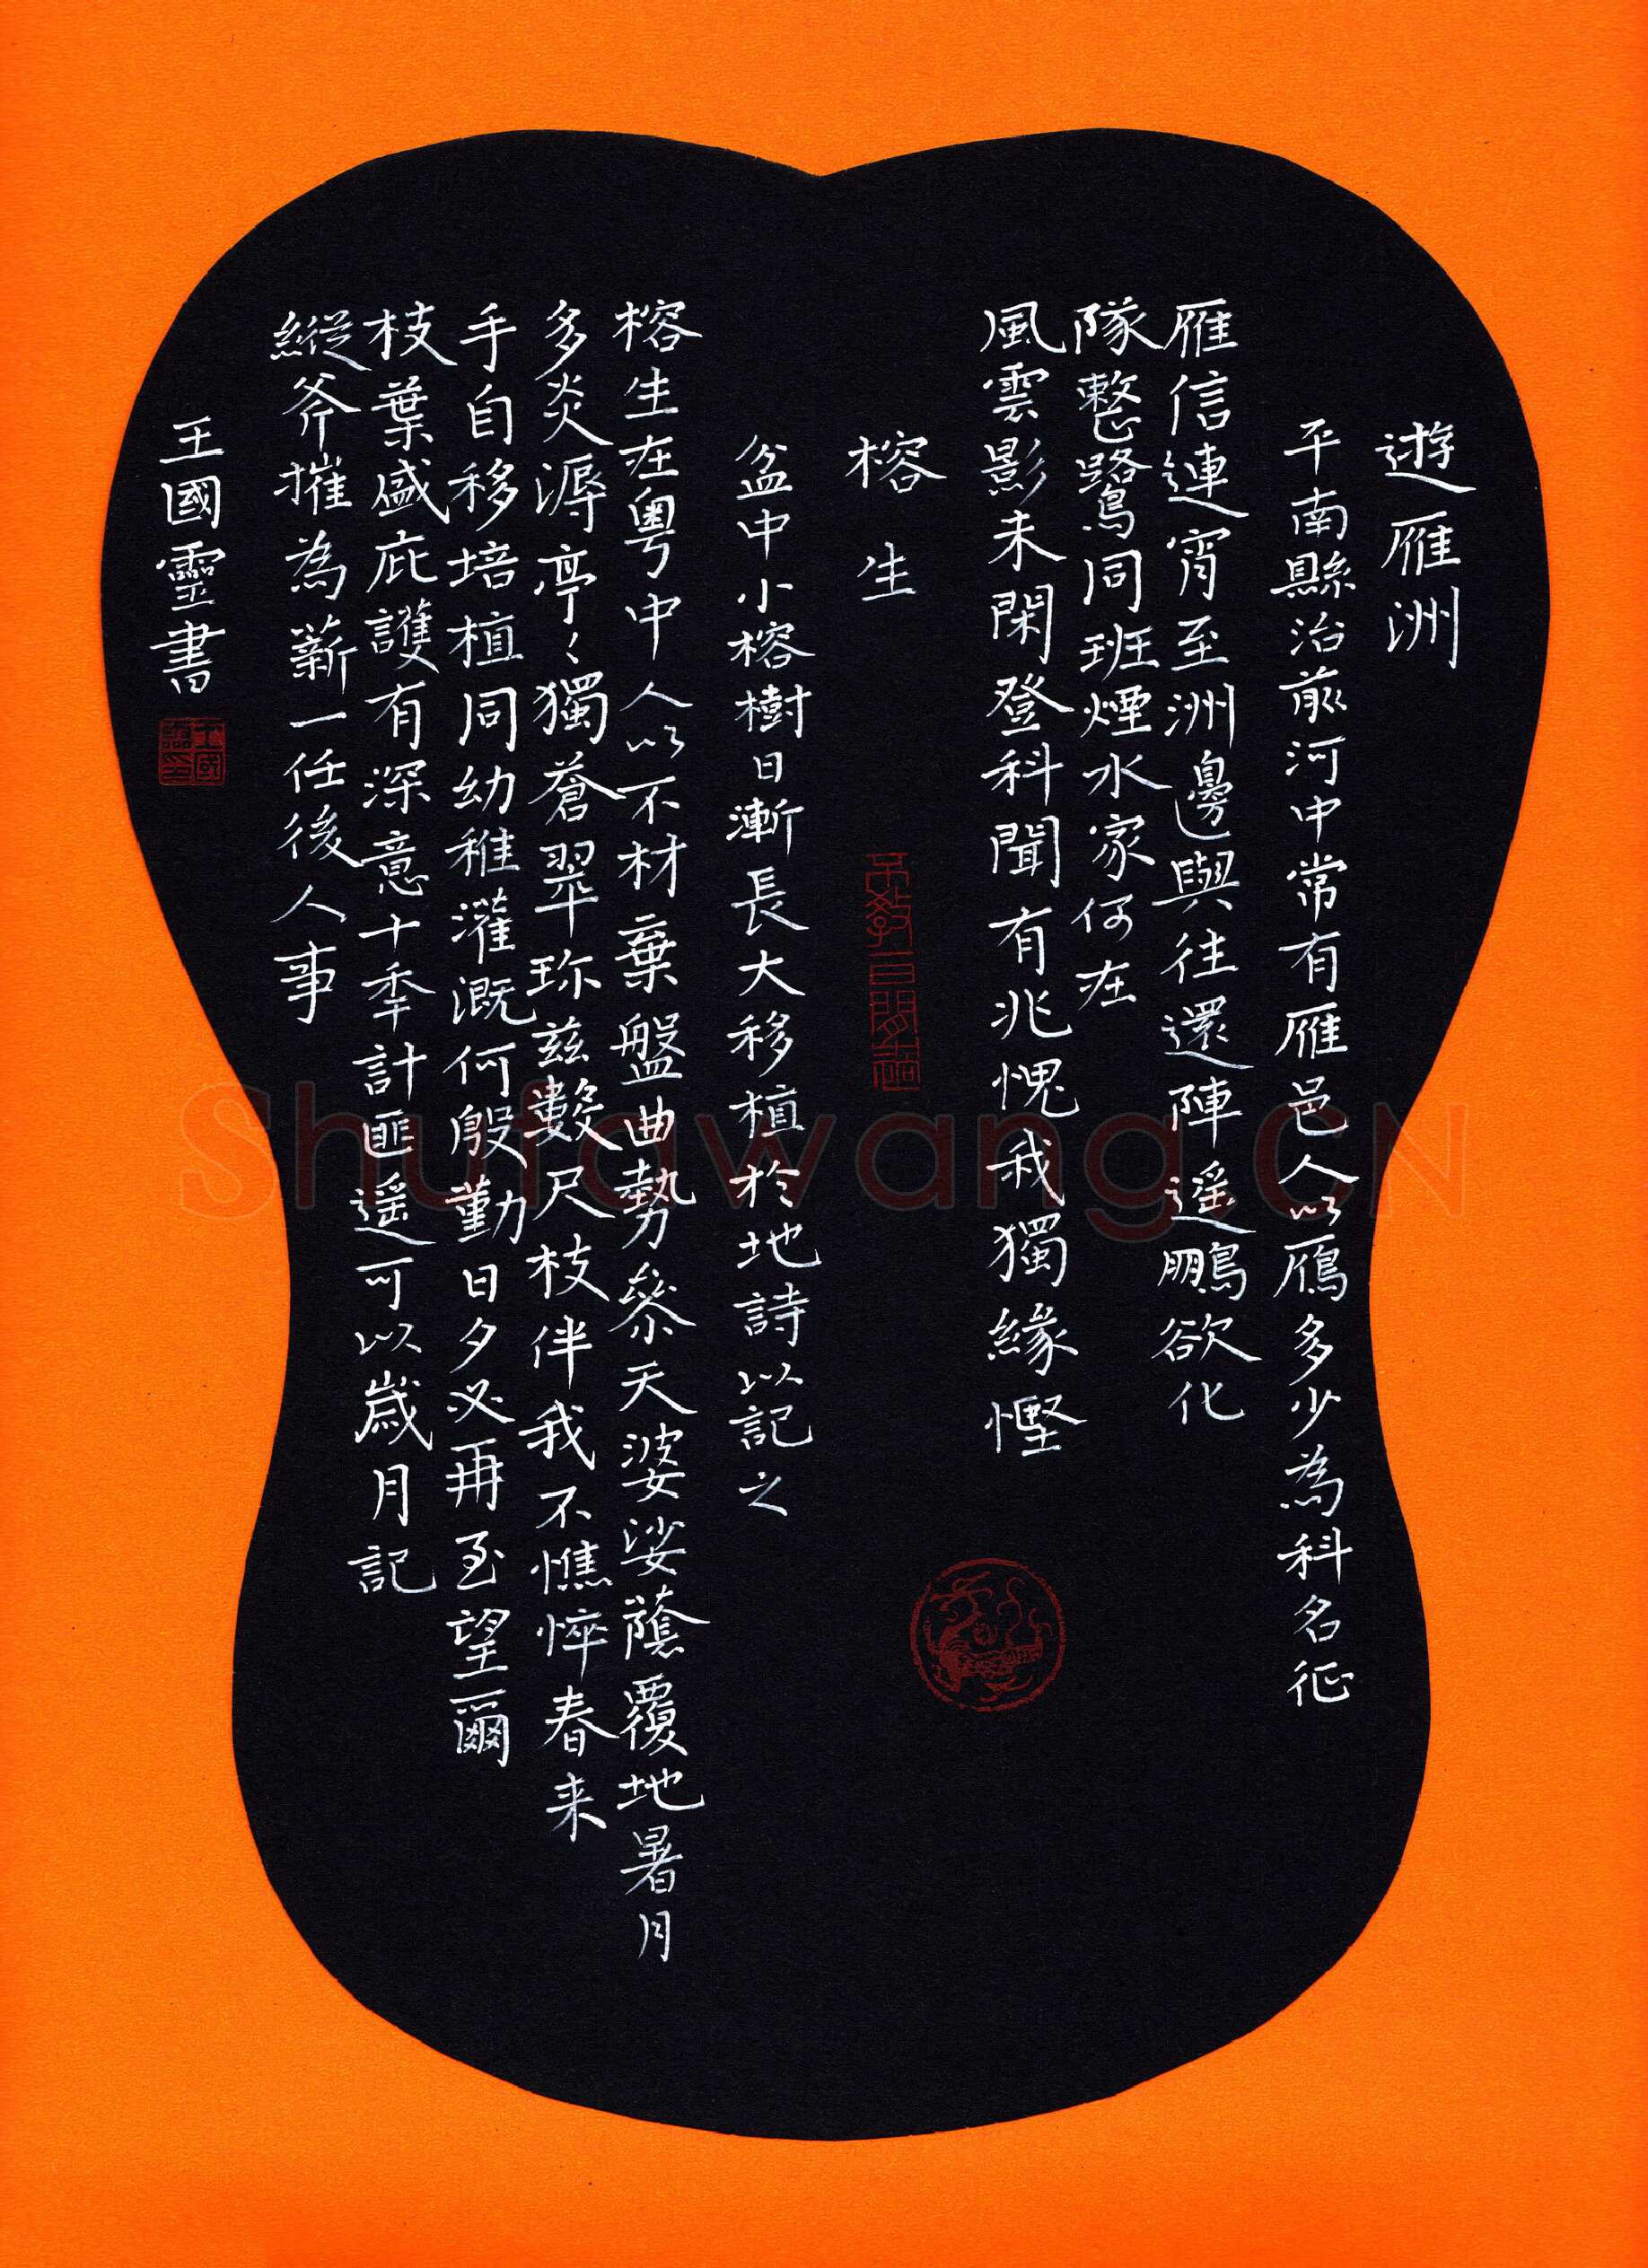 遊雁洲
平南縣治前河中常有雁邑人以鴈多少為科名征
雁信連宵至洲邊與往還陣遥鵬欲化
隊整鷺同班煙水家何在
風雲影未閑登科聞有兆愧我獨緣慳
榕生
盆中小榕樹日漸長大移植於地詩以記之
榕生在粤中人以不材棄盤曲勢參天婆娑蔭覆地暑月
多炎溽亭〻獨蒼翠珎兹數尺枝伴我不憔悴春来
手自移培植同幼稚灌溉何殷勤日夕必再至望爾
枝葉盛庇護有深意十年計匪遥可以歲月記
縱斧摧為薪一任後人事
王國靈書
Shufawang.CN